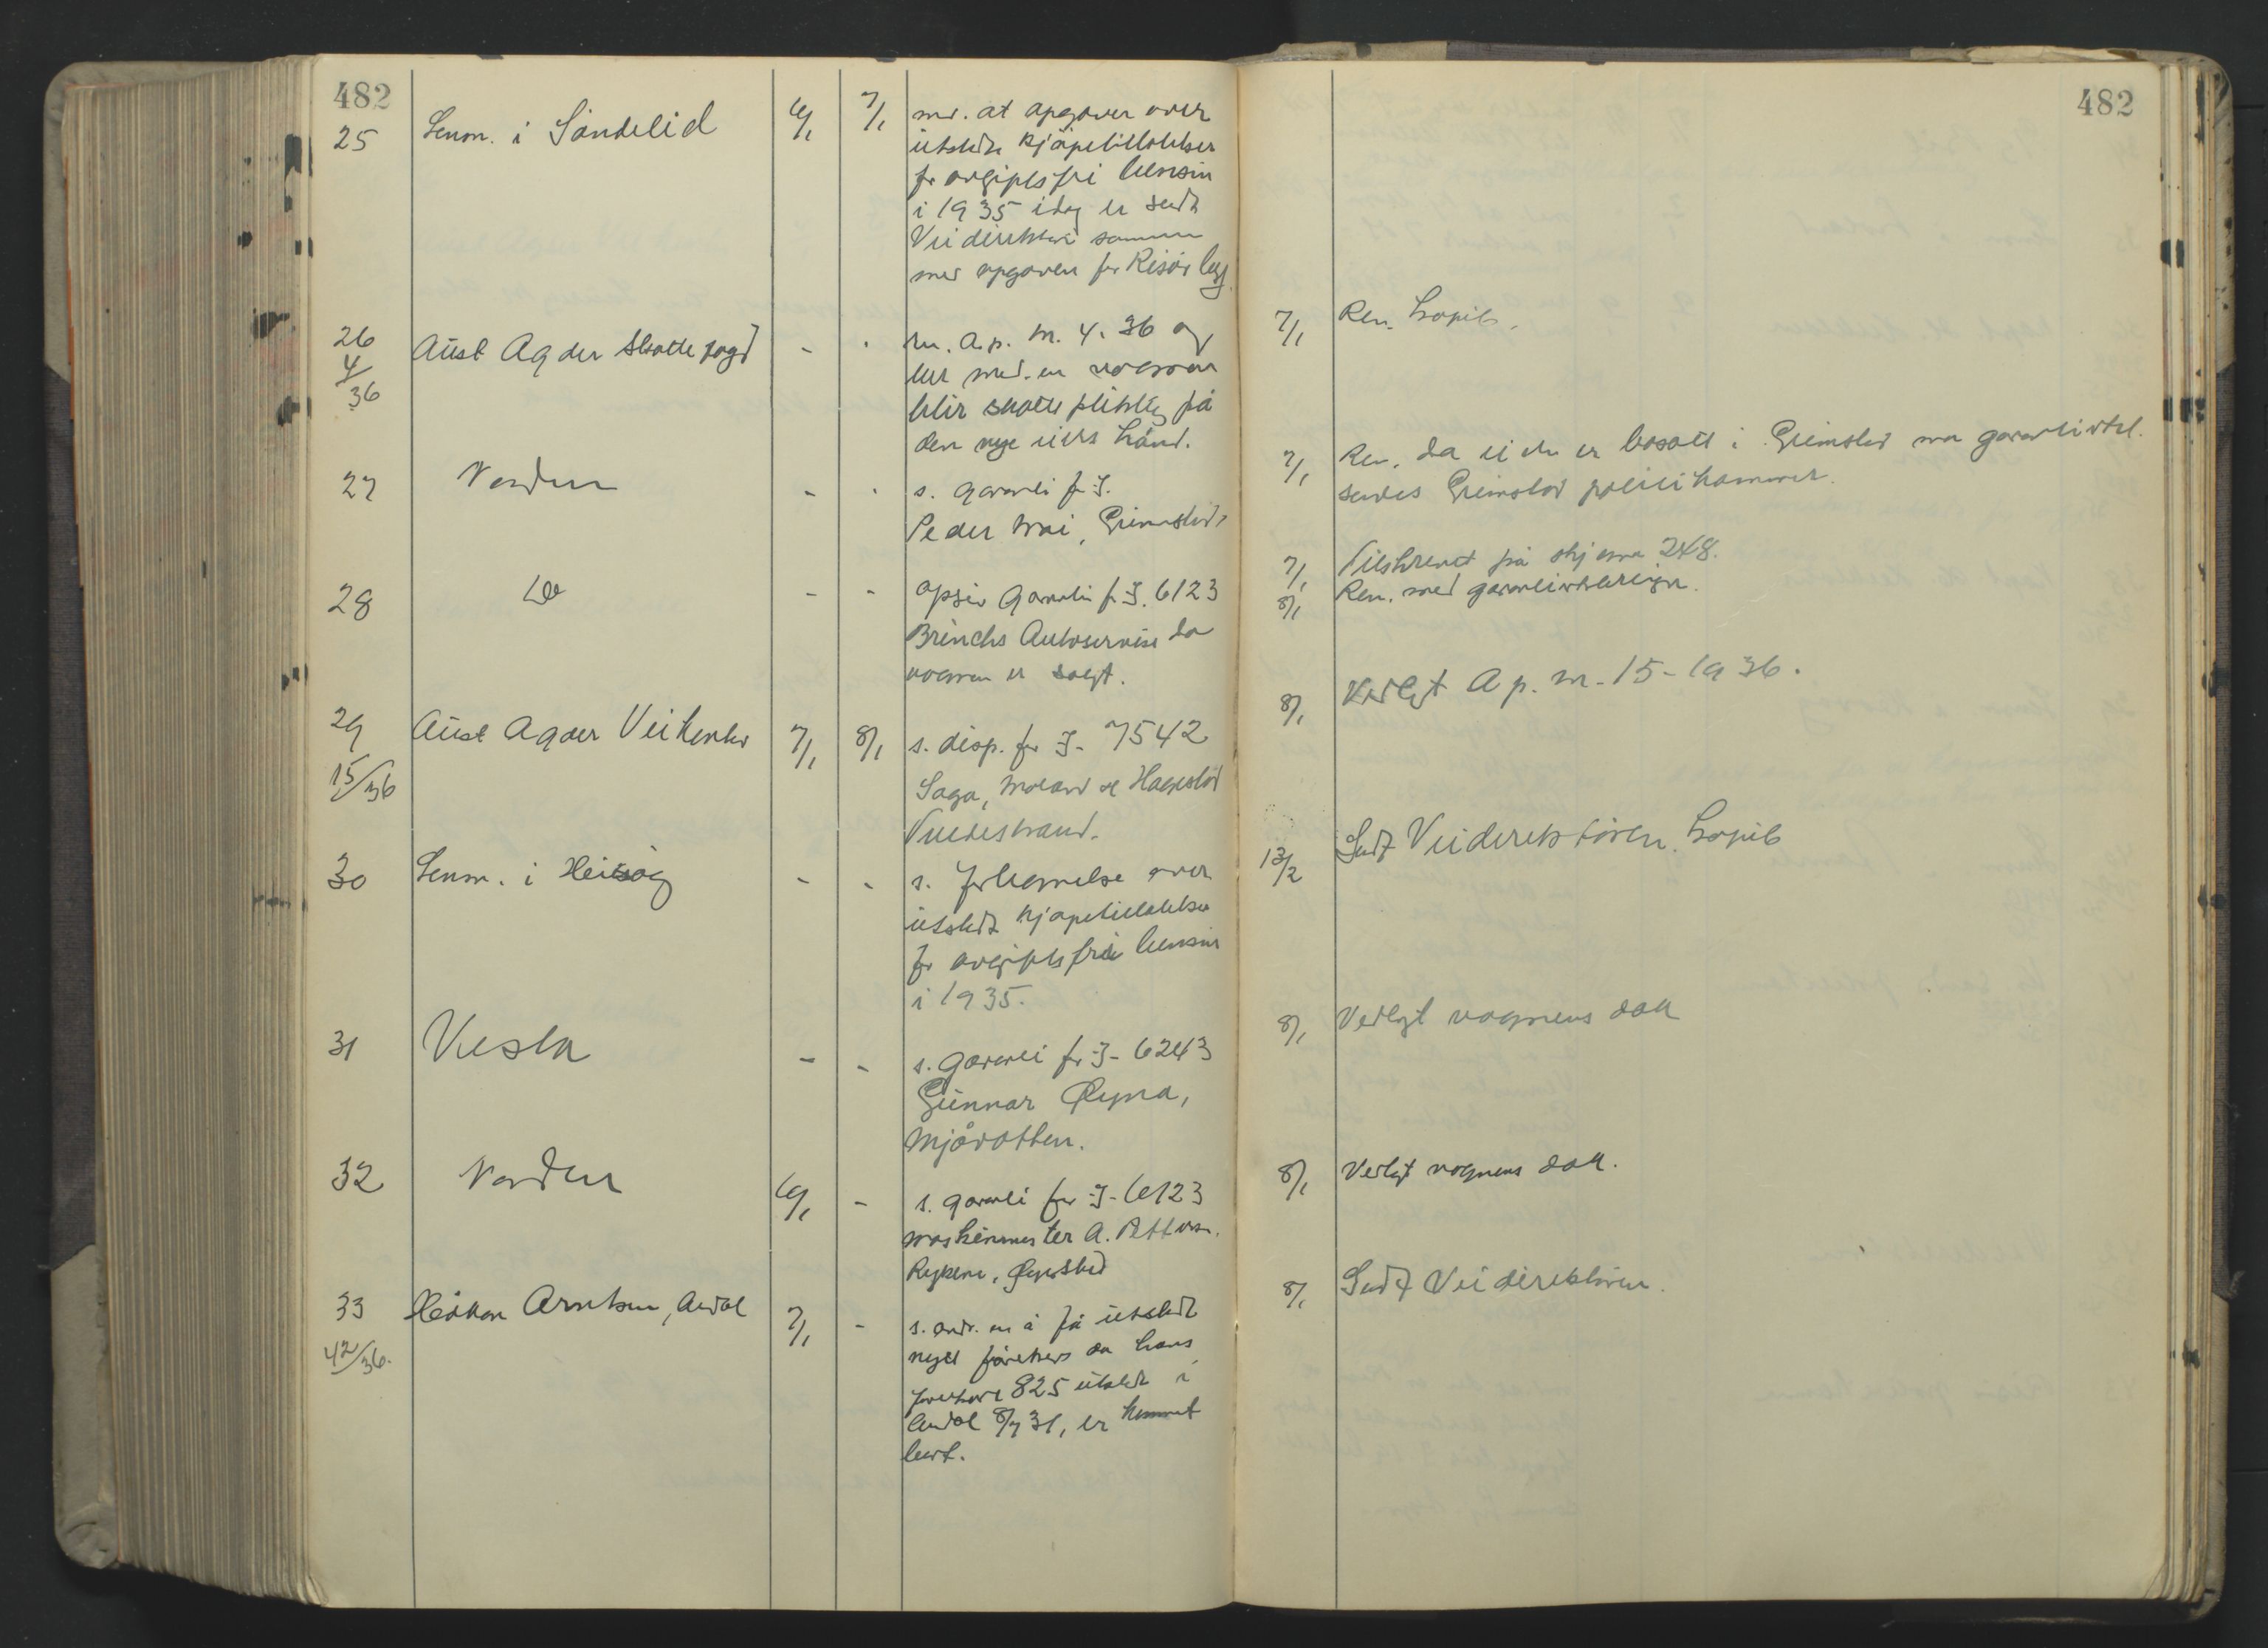 482
25 Lensm. i Søndeled 6/1 7/1 md. at opgaver over
utstedte kjøpetillatelser
for avgiftsfri bensin
i 1935 idag er sendt
Veidirektøren sammen
med opgaven for Risør by.
26 Aust Agder Skattefogd - - m. 4. 36 og
4/36 ber med. en vognen
blir skattepliktig på
den nye eiers hånd.
27 Norden - - s. garanti for I.
Peder Moi, Grimstad.
28 Do - - opsier garanti for I. 6123
Brincks Autoservise da
vognen er solgt.
29 Aust Agder Veikontor 7/1 8/1 s. disp. for I- 7542
15/36 Saga, Moland og Hagestad
Tvedestrand.
30 Lensm. i - - s. fortegnelse over
utstedte kjøpetillatelser
for avgiftsfri bensin
i 1935.
31 Vesta - - s. garanti for I- 6243
Gunnar Øyna,
Mjåvatten.
32 Norden 6/1 - s. garanti for I- 6123
maskinmester A. Pettersen
Rykene, Øyestad
33 Håkon Arntsen, Arendal 7/1 - s. andr. om å få utstedt
42/36. nytt førerkort da hans
førerkort 825 utstedt i
Arendal 8/7 31, er kommet
bort.
482
7/1 Ren. kopib.
7/1 Ren. da eieren er bosatt i Grimstad må garantierkl.
sendes Grimstad politikammer.
7/1 Tilskrevet på skjema 248.
8/1 Ren. med garantierklæringen.
8/1 Vedlagt A p. m. 15-1936.
13/2 Sendt Veidirektøren. kopib
8/1 Vedlagt vognens dok
8/1 Vedlagt vognens dok.
8/1 Sendt Veidirektøren.